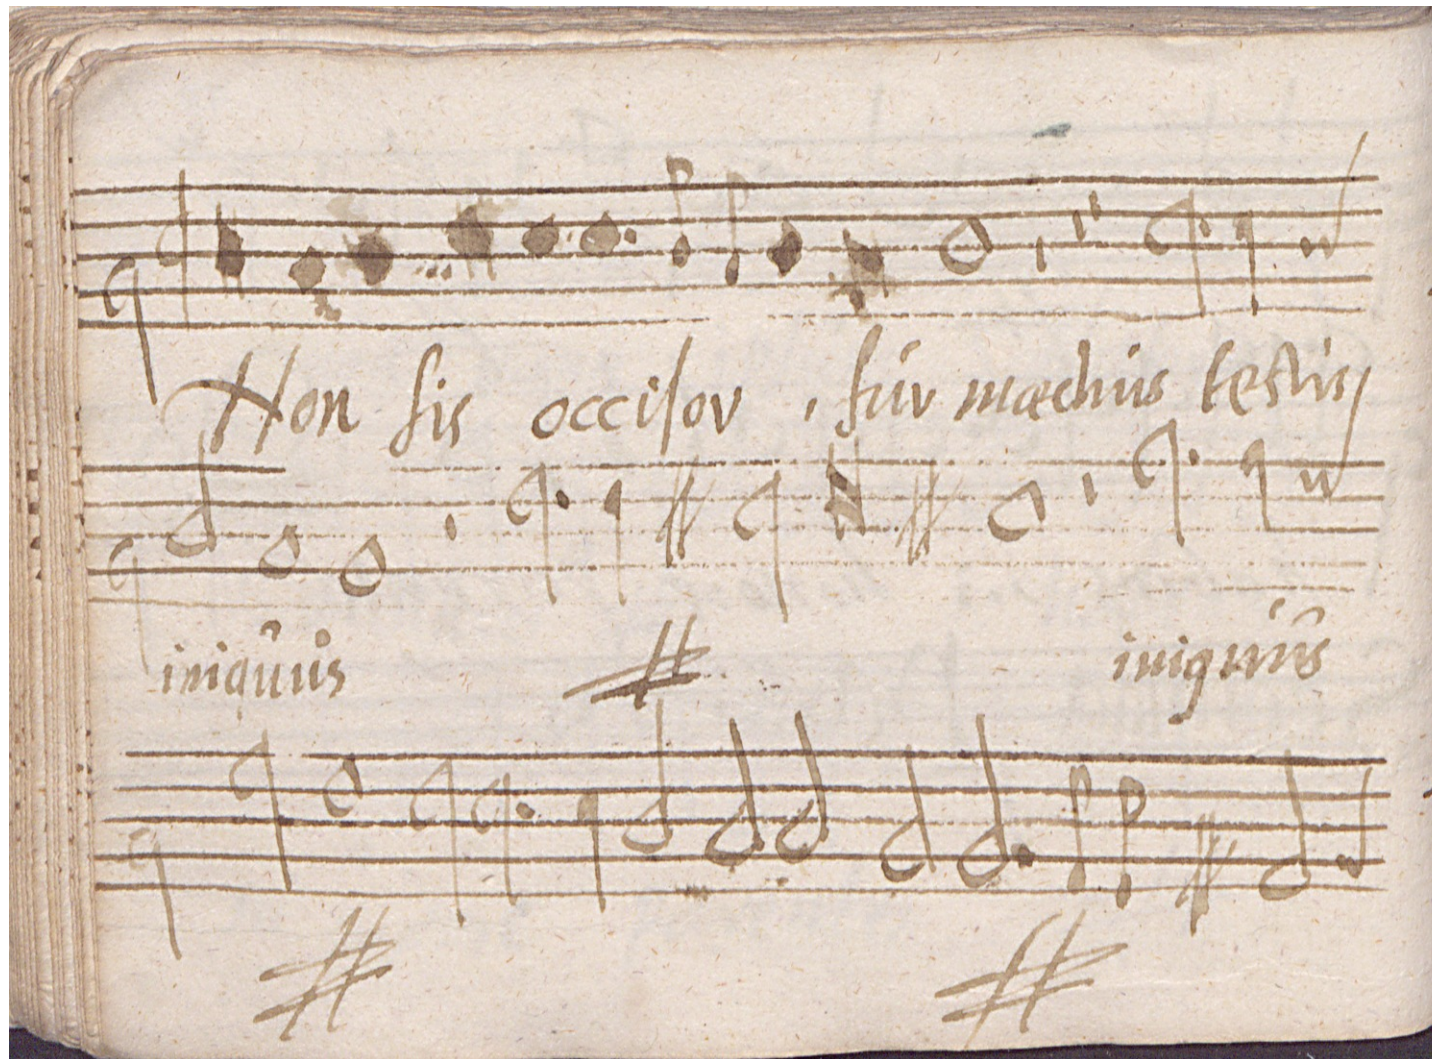 Non sis occisor, fur mœchus testis
iniquus iniquus